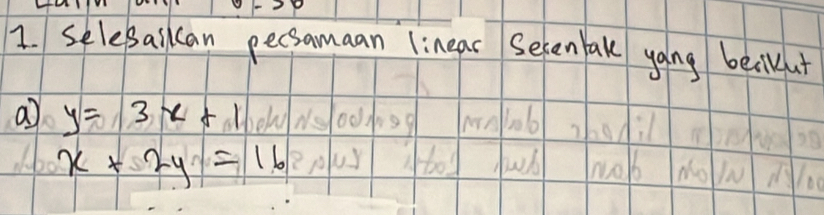 1. Selesaikan persamaan linear Serentak yang berikut
a) y = 3x + 1
x + 2y = 16